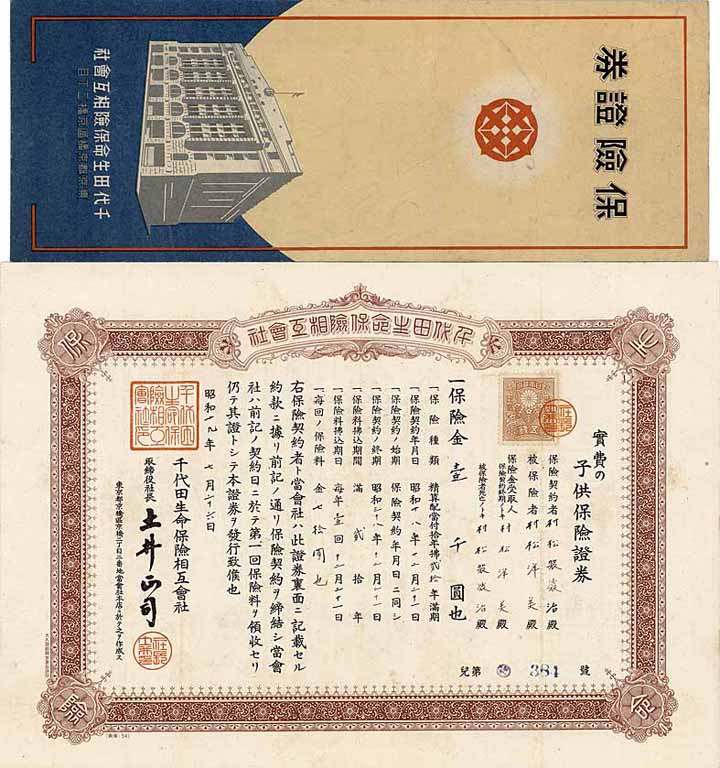 保險證券
千代田生命保險相互會社
東京都京橋區京橋二丁目
千代田生命保險相互會社
生
保
命
險
實費の
子供保險證券
保險契約者 村松 殿
被保險者 村松洋美殿
保險金受取人
保險契約終期ノトキ 村松洋美殿
被保險者死亡ノトキ 村松 殿
一保險金壹千圓也
一保險種類 精算配當付拾年拂貳拾年滿期
一保險契約年月日 昭和十八年十二月二十一日
一保險契約ノ始期 保險契約年月日ニ同シ
一保險契約ノ終期 昭和三十八年十二月二十一日
一保險料拂込期間 貳拾年
一保險料拂込期日 每年壹回十二月二十一日
一每回ノ保險料 金七拾圓也
右保險契約者ト當會社ハ此證券裏面ニ記載セル
約款ニ據リ前記ノ通リ保險契約ヲ締結シ當會
社ハ前記ノ契約日ニ於テ第一回保險料ヲ領收セリ
仍テ其證トシテ本證券ヲ發行致候也
昭和十九年七月二十六日
千代田生命保險相互會社
取締役社長 土井正司
東京都京橋區京橋二丁目三番地當會社本店ニ於テ之ヲ作成ス
兒第 384 號